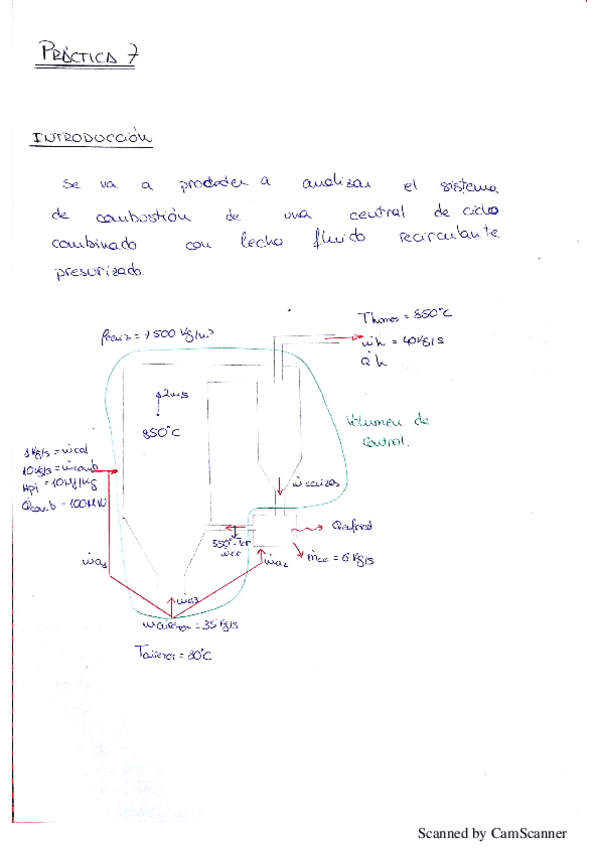 PRÁCTICA 7
INTRODUCCIÓN
Se va a proceder a analizar el sistema
de combustión de una central de ciclo
combinado con lecho fluido recirculante
presurizado.
Thumos = 850°C
ṁh = 40 kg/s
Q̇h
= 7500 kg/m³
2m/s
850°C
Volumen de
Control.
= ṁcal
10 kg/s = ṁcomb
Hpi = 10MJ/kg
Q̇comb = 100MW
ṁcenizas
Qrefrid
550°C = Tcr
ṁcr
ṁce = 6 kg/s
ṁa1
ṁa2
ṁa3
= 35 kg/s
= 80°C
Scanned by CamScanner